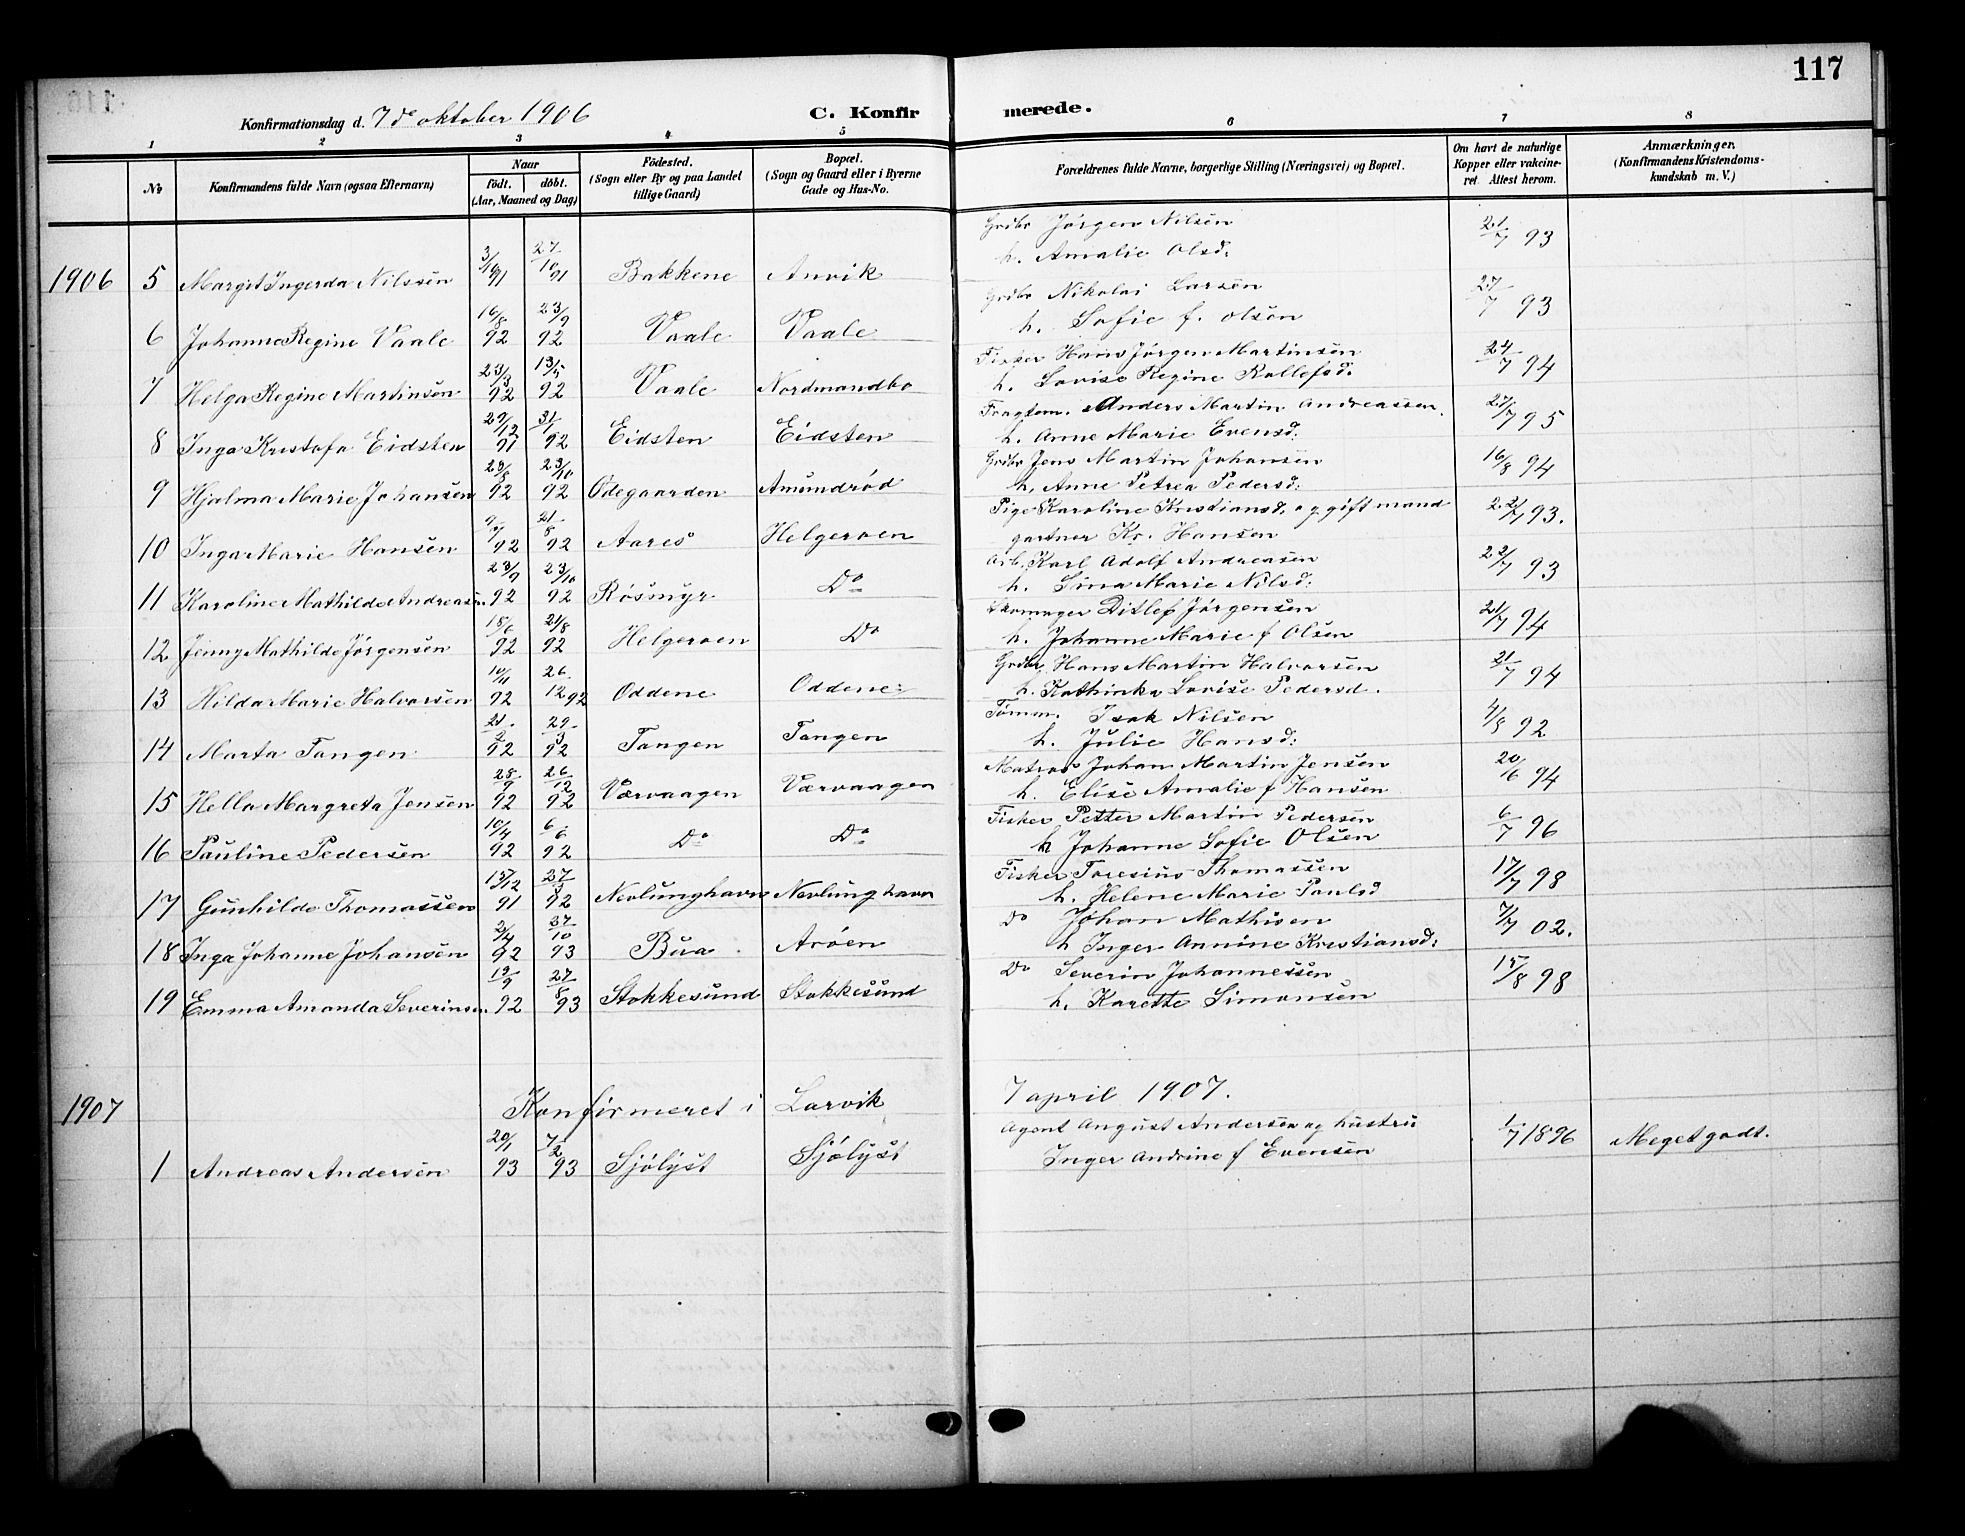 117
Konfirmationsdag d. 7de oktober 1906 C. Konfirmerede.
1 2 3 4 5 6 7 8
No
Konfirmandens fulde Navn (ogsaa Efternavn)
Naar
født. døbt.
(Aar, Maaned og Dag)
Fødested.
(Sogn eller By og paa Landet
tillige Gaard)
Bopæl.
(Sogn og Gaard eller i Byerne
Gade og Hus-No.
Forældrenes fulde Navne, borgerlige Stilling (Næringsvei) og Bopæl.
Om havt de naturlige
Kopper eller vakcine-
ret. Attest herom.
Anmærkninger.
(Konfirmandens Kristendoms-
kundskab m. V.)
Grdbr Jørgen Nilsen
1906 5 Margit Ingerda Nilssen 3/10 91 27/10 91 Bakkene Anvik h. Amalie Olsd. 21/7 93
Grdbr Nikolai Larsen
6 Johanne Regine Vaale 16/8 92 23/9 92 Vaale Vaale h. Sofie f. Olsen 27/7 93
Fisker Hans Jørgen Martinsen
7 Helga Regine Martinsen 23/3 92 13/5 92 Vaale Nordmandbo h. Lovise Regine Rollefsd. 24/7 94
Fragtem. Anders Martin Andreassen.
8 Inga Kristofa Eidsten 29/12 91 31/1 92 Eidsten Eidsten h. Anne Marie Evensd. 27/7 95
Grdbr Jens Martin Johansen
9 Hjalma Marie Johansen 23/8 92 23/10 92 Ødegaarden Amundrød h. Anne Petrea Pedersd. 16/8 94
Pige Karoline Kristiansd. og gift mand
10 Inga Marie Hansen 9/7 92 21/8 92 Aares Helgeroen gartner Kr. Hansen 22/7 93.
Arb. Karl Adolf Andreasen
11 Karoline Mathilde Andreasn. 23/9 92 23/10 92 Røsmyr Do h. Sina Marie Nilsd. 22/7 93
Skomager Ditlef Jørgensen
12 Jenny Mathilde Jørgensen 18/6 92 21/8 92 Helgeroen Do h. Johanne Marie f Olsen 21/7 94
Grdbr. Hans Martin Halvorsen
13 Hilda Marie Halvorsen 10/11 92 26. 12 92 Oddene Oddene h. Kathinka Lovise Pedersd. 21/7 94
Tømm. Isak Nilsen
14 Marta Tangen 21/2 92 29/3 92 Tangen Tangen h. Julie Hansd. 4/8 92
Matros Johan Martin Jensen
15 Hella Margreta Jensen 28/9 92 26/12 92 Værvaagen Værvaagen h. Elise Amalie f Hansen 20/6 94
Fisker Petter Martin Pedersen
16 Pauline Pedersen 10/4 92 6/6 92 Do Do h Johanne Sofie Olsen 6/7 96
Fisker Toresius Thomassen
17 Gunhilde Thomassen 15/12 91 27/3 92 Nevlunghavn Nevlunghavn h. Helene Marie Paulsd 17/7 98
Do Johan Mathisen
18 Inga Johanne Johansen 2/4 92 27/10 93 Bua Arøen h Inger Annine Kristiansd. 7/7 02.
Do Severin Johannessen
19 Emma Amanda Severinsen. 19/9 92 27/8 93 Stokkesund Stokkesund h. Karette Simonsen 15/8 98
1907 Konfirmeret i Larvik 7 april 1907.
Agent August Andersen og hustru
1 Andreas Andersen 20/1 93 7/2 93 Sjølyst Sjølyst Inger Andrine f Evensen 1/7 1896 Meget godt.